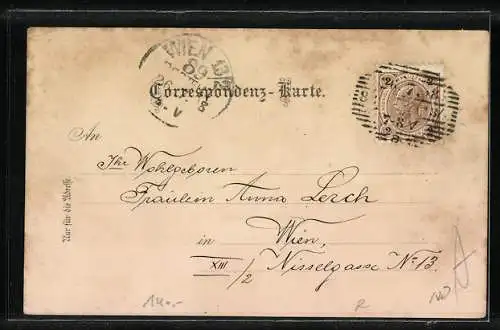 WIEN 13/2
89
Correspondenz-Karte.
An
Ihr Wohlgeboren
Fräulein Anna Lerch
in Wien,
XIII/2 Nisselgasse No 13.
Nur für die Adresse.